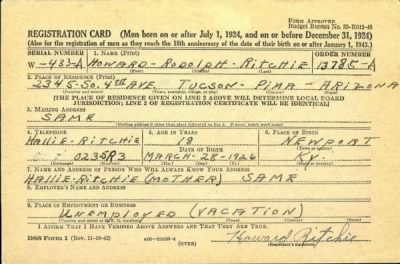 FORM APPROVED
Budget Bureau No. 33-R012-43
REGISTRATION CARD (Men born on or after July 1, 1924, and on or before December 31, 1924)
(Also for the registration of men as they reach the 18th anniversary of the date of their birth on or after January 1, 1943.)
SERIAL NUMBER 1. NAME (Print) ORDER NUMBER
W-433-A HOWARD - RODOLPH - RITCHIE 13785-A
(First) (Middle) (Last)
2. PLACE OF RESIDENCE (Print)
2345 - SO. 4TH AVE. TUCSON - PIMA - ARIZONA
(Number and street) (Town, township, village, or city) (County) (State)
[THE PLACE OF RESIDENCE GIVEN ON LINE 2 ABOVE WILL DETERMINE LOCAL BOARD
JURISDICTION; LINE 2 OF REGISTRATION CERTIFICATE WILL BE IDENTICAL]
3. MAILING ADDRESS
SAME
[Mailing address if other than place indicated on line 2. If same, insert word same]
4. TELEPHONE 5. AGE IN YEARS 6. PLACE OF BIRTH
HALLIE - RITCHIE 18 NEWPORT
DATE OF BIRTH
0235R3 MARCH - 28 - 1926 KY.
7. NAME AND ADDRESS OF PERSON WHO WILL ALWAYS KNOW YOUR ADDRESS
HALLIE - RITCHIE (MOTHER) SAME
8. EMPLOYER'S NAME AND ADDRESS
9. PLACE OF EMPLOYMENT OR BUSINESS
UNEMPLOYED (VACATION)
(Number and street or R. F. D. number) (Town) (County) (State)
I AFFIRM THAT I HAVE VERIFIED ABOVE ANSWERS AND THAT THEY ARE TRUE.
DSS Form 1 (Rev. 11-16-42) (OVER) Howard Ritchie
(Registrant's signature)